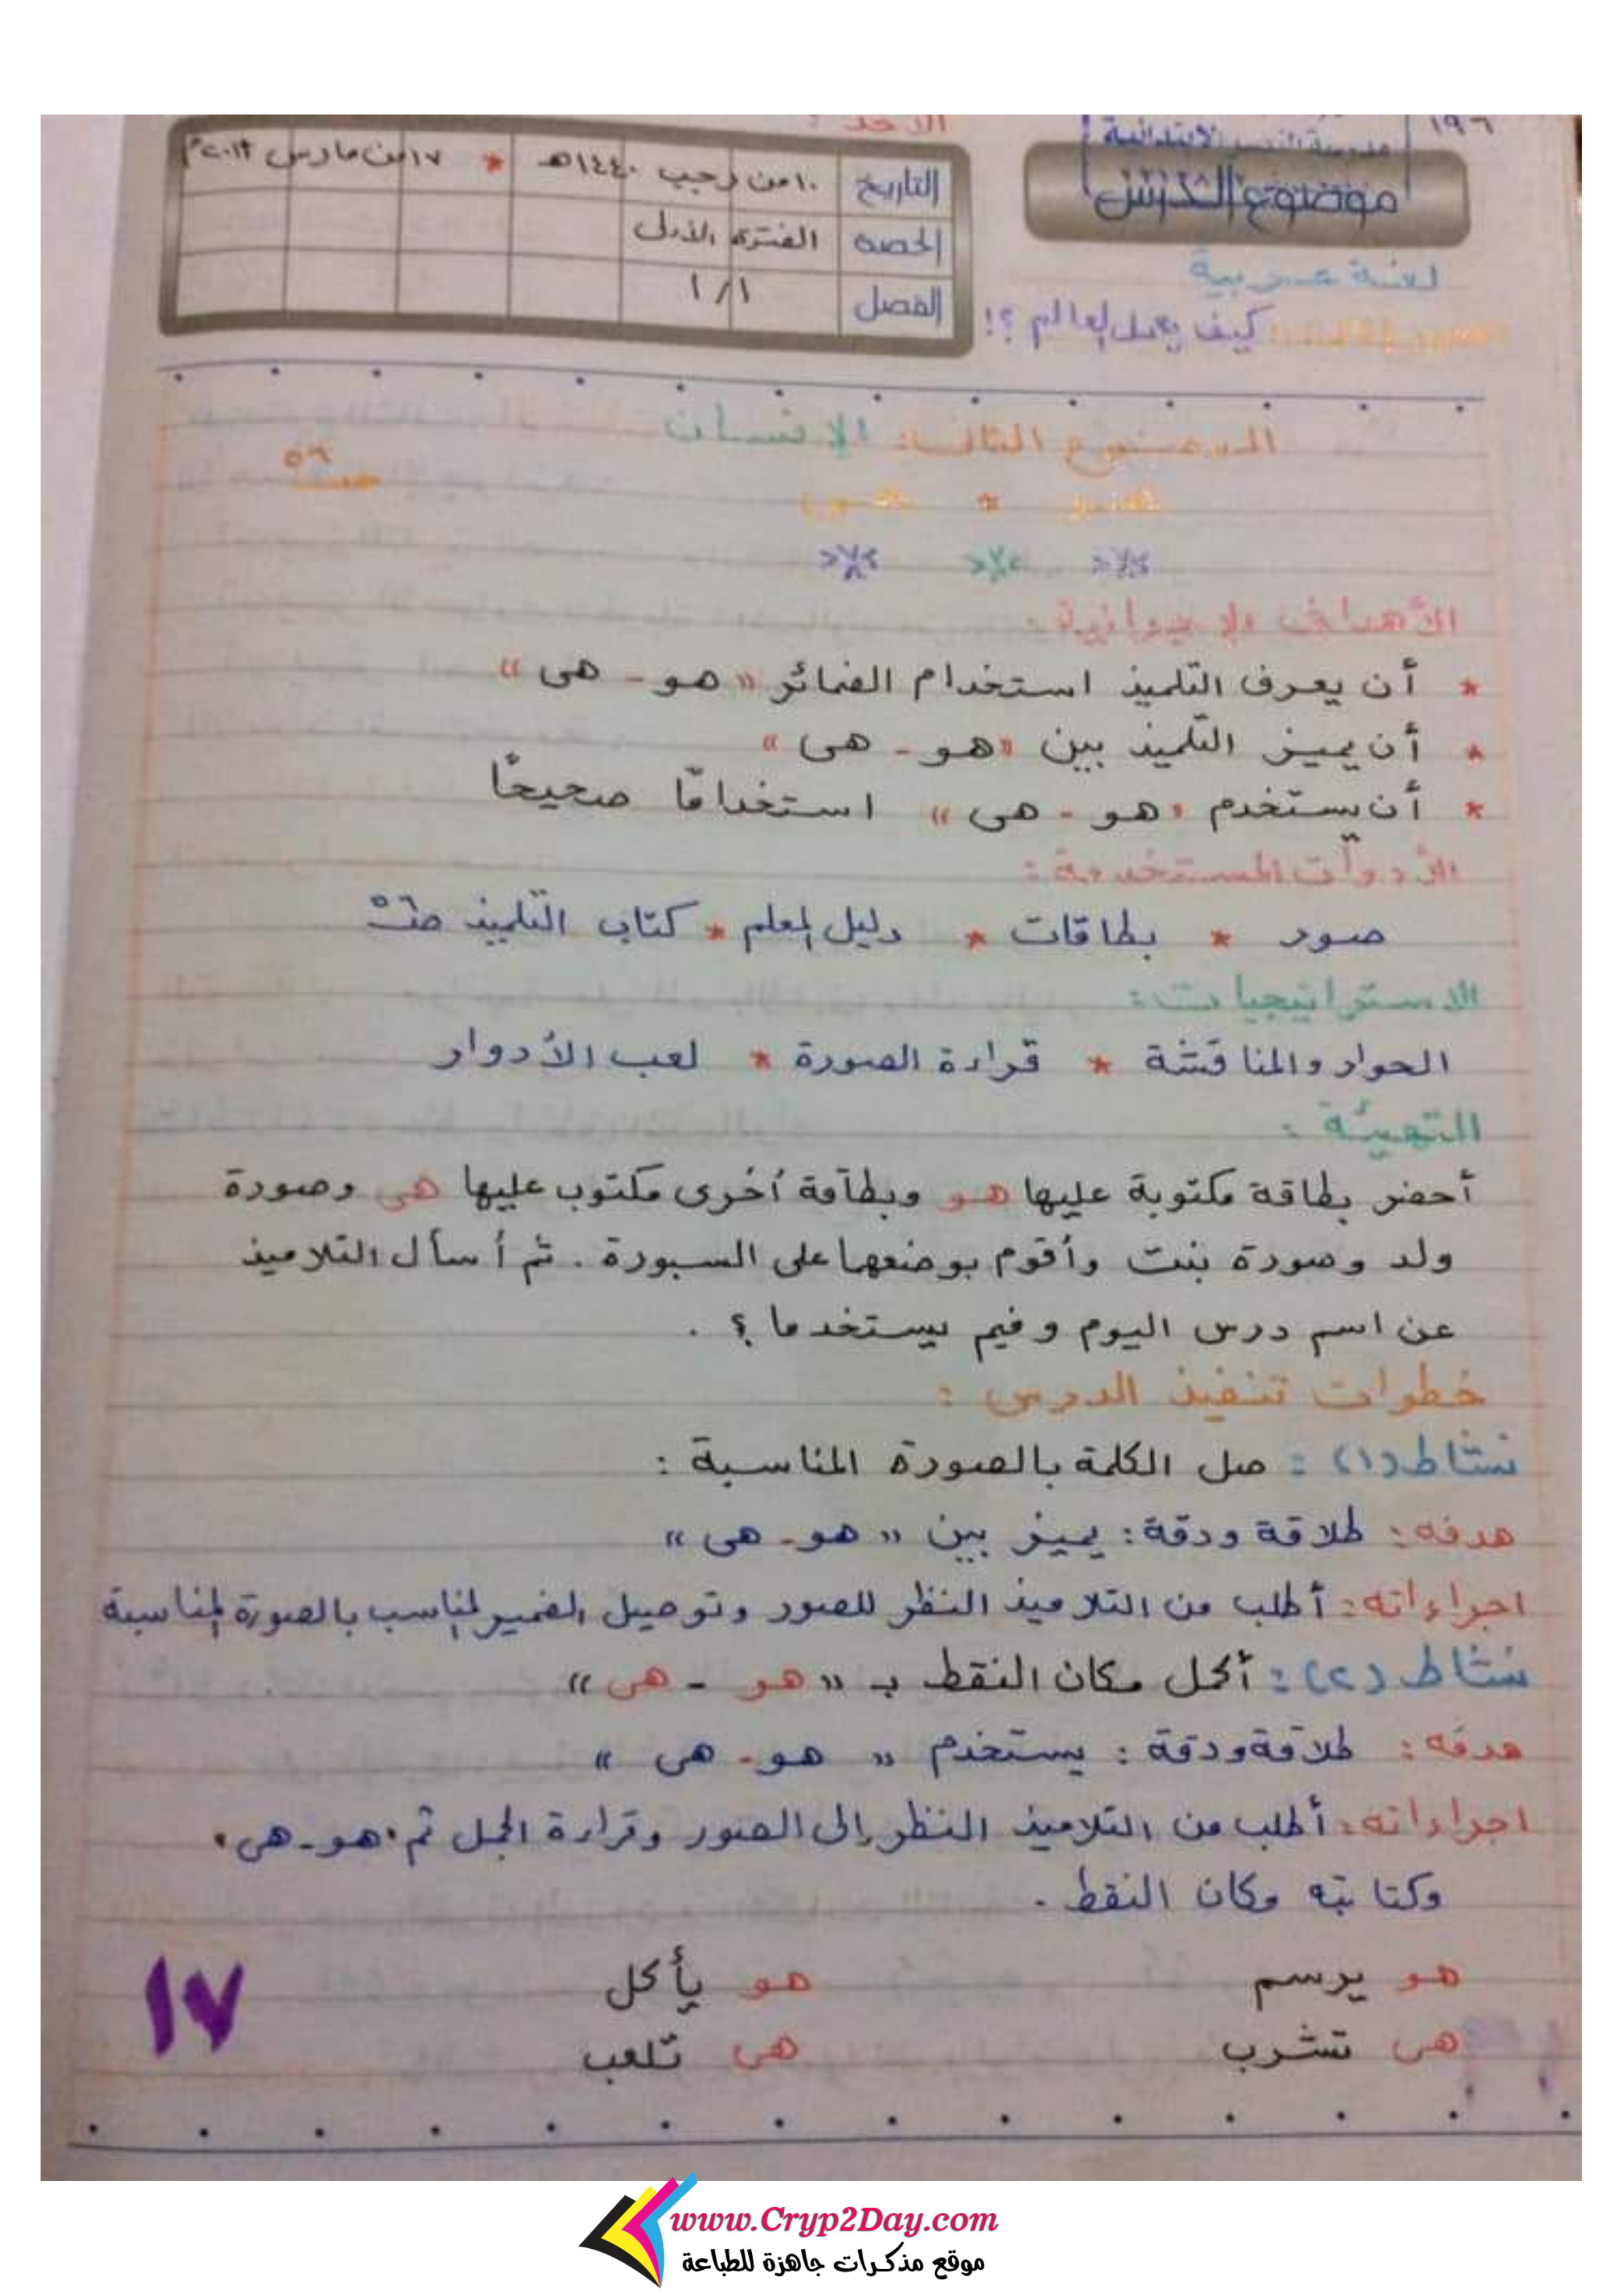 الأحد :
١٩٦
مدرسة الابتدائية
موضوع الدرس
التاريخ ١٠ من رجب ١٤٤٠هـ * ١٧ من مارس ٢٠١٩م
الحصة الفترة الأولى
الفصل ١/١
لغة عربية
كيف يعمل العالم ؟!
الموضوع الثاني: الإنسان
ص ٥٦
الأهداف الإجرائية :
* أن يعرف التلميذ استخدام الضمائر « هو - هى »
* أن يميز التلميذ بين « هو - هى »
* أن يستخدم « هو - هى » استخدامًا صحيحًا
الأدوات المستخدمة :
صور * بطاقات * دليل المعلم * كتاب التلميذ
الاستراتيجيات :
الحوار والمناقشة * قراءة الصورة * لعب الأدوار
التهيئة :
أحضر بطاقة مكتوبة عليها هو وبطاقة أخرى مكتوب عليها هى وصورة
ولد وصورة بنت وأقوم بوضعها على السبورة . ثم أسأل التلاميذ
عن اسم درس اليوم وفيم يستخدما ؟ .
خطوات تنفيذ الدرس :
نشاط (١) : صل الكلمة بالصورة المناسبة :
هدفه : طلاقة ودقة : يميز بين « هو - هى »
اجراءاته : أطلب من التلاميذ النظر للصور وتوصيل الضمير المناسب بالصورة المناسبة
نشاط (٢) : أكمل مكان النقط بـ « هو - هى »
هدفه : طلاقة ودقة : يستخدم « هو - هى »
اجراءاته : أطلب من التلاميذ النظر إلى الصور وقراءة الجمل ثم " هو - هى "
وكتابته مكان النقط .
هو يرسم هو يأكل
هى تشرب هى تلعب
١٧
www.Cryp2Day.com
موقع مذكرات جاهزة للطباعة